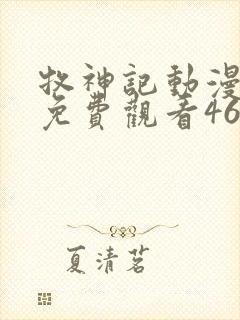 牧神記動漫
免費觀看46
夏清茗